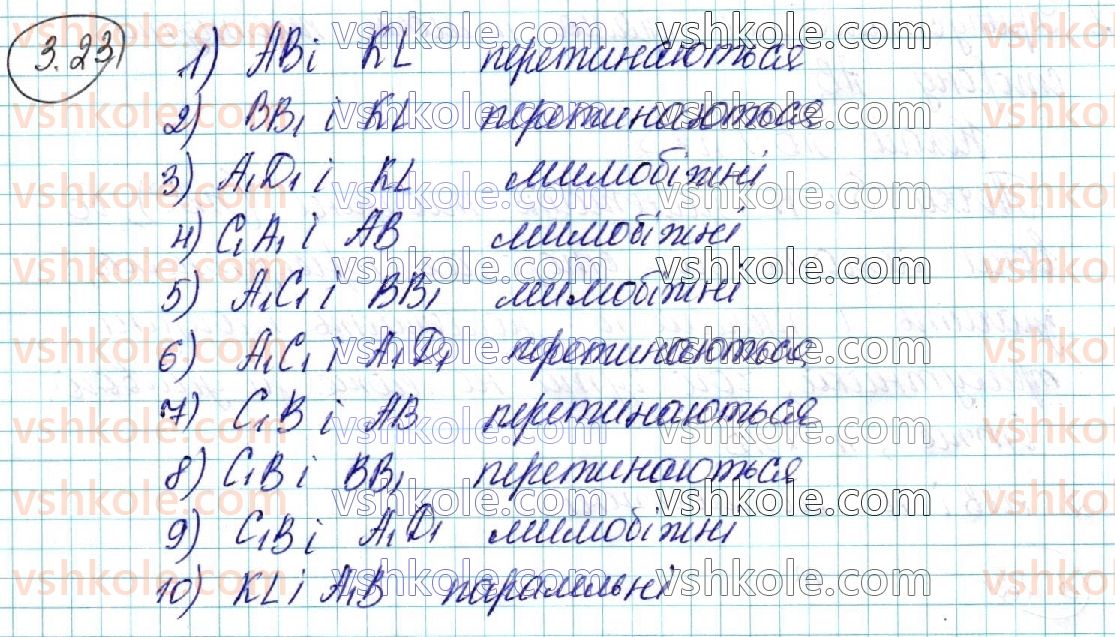 3.23
1) AB і KL перетинаються
2) BB₁ і KL перетинаються
3) A₁D₁ і KL мимобіжні
4) C₁A₁ і AB мимобіжні
5) A₁C₁ і BB₁ мимобіжні
6) A₁C₁ і A₁D₁ перетинаються
7) C₁B і AB перетинаються
8) C₁B і BB₁ перетинаються
9) C₁B і A₁D₁ мимобіжні
10) KL і A₁B паралельні
vshkole.com